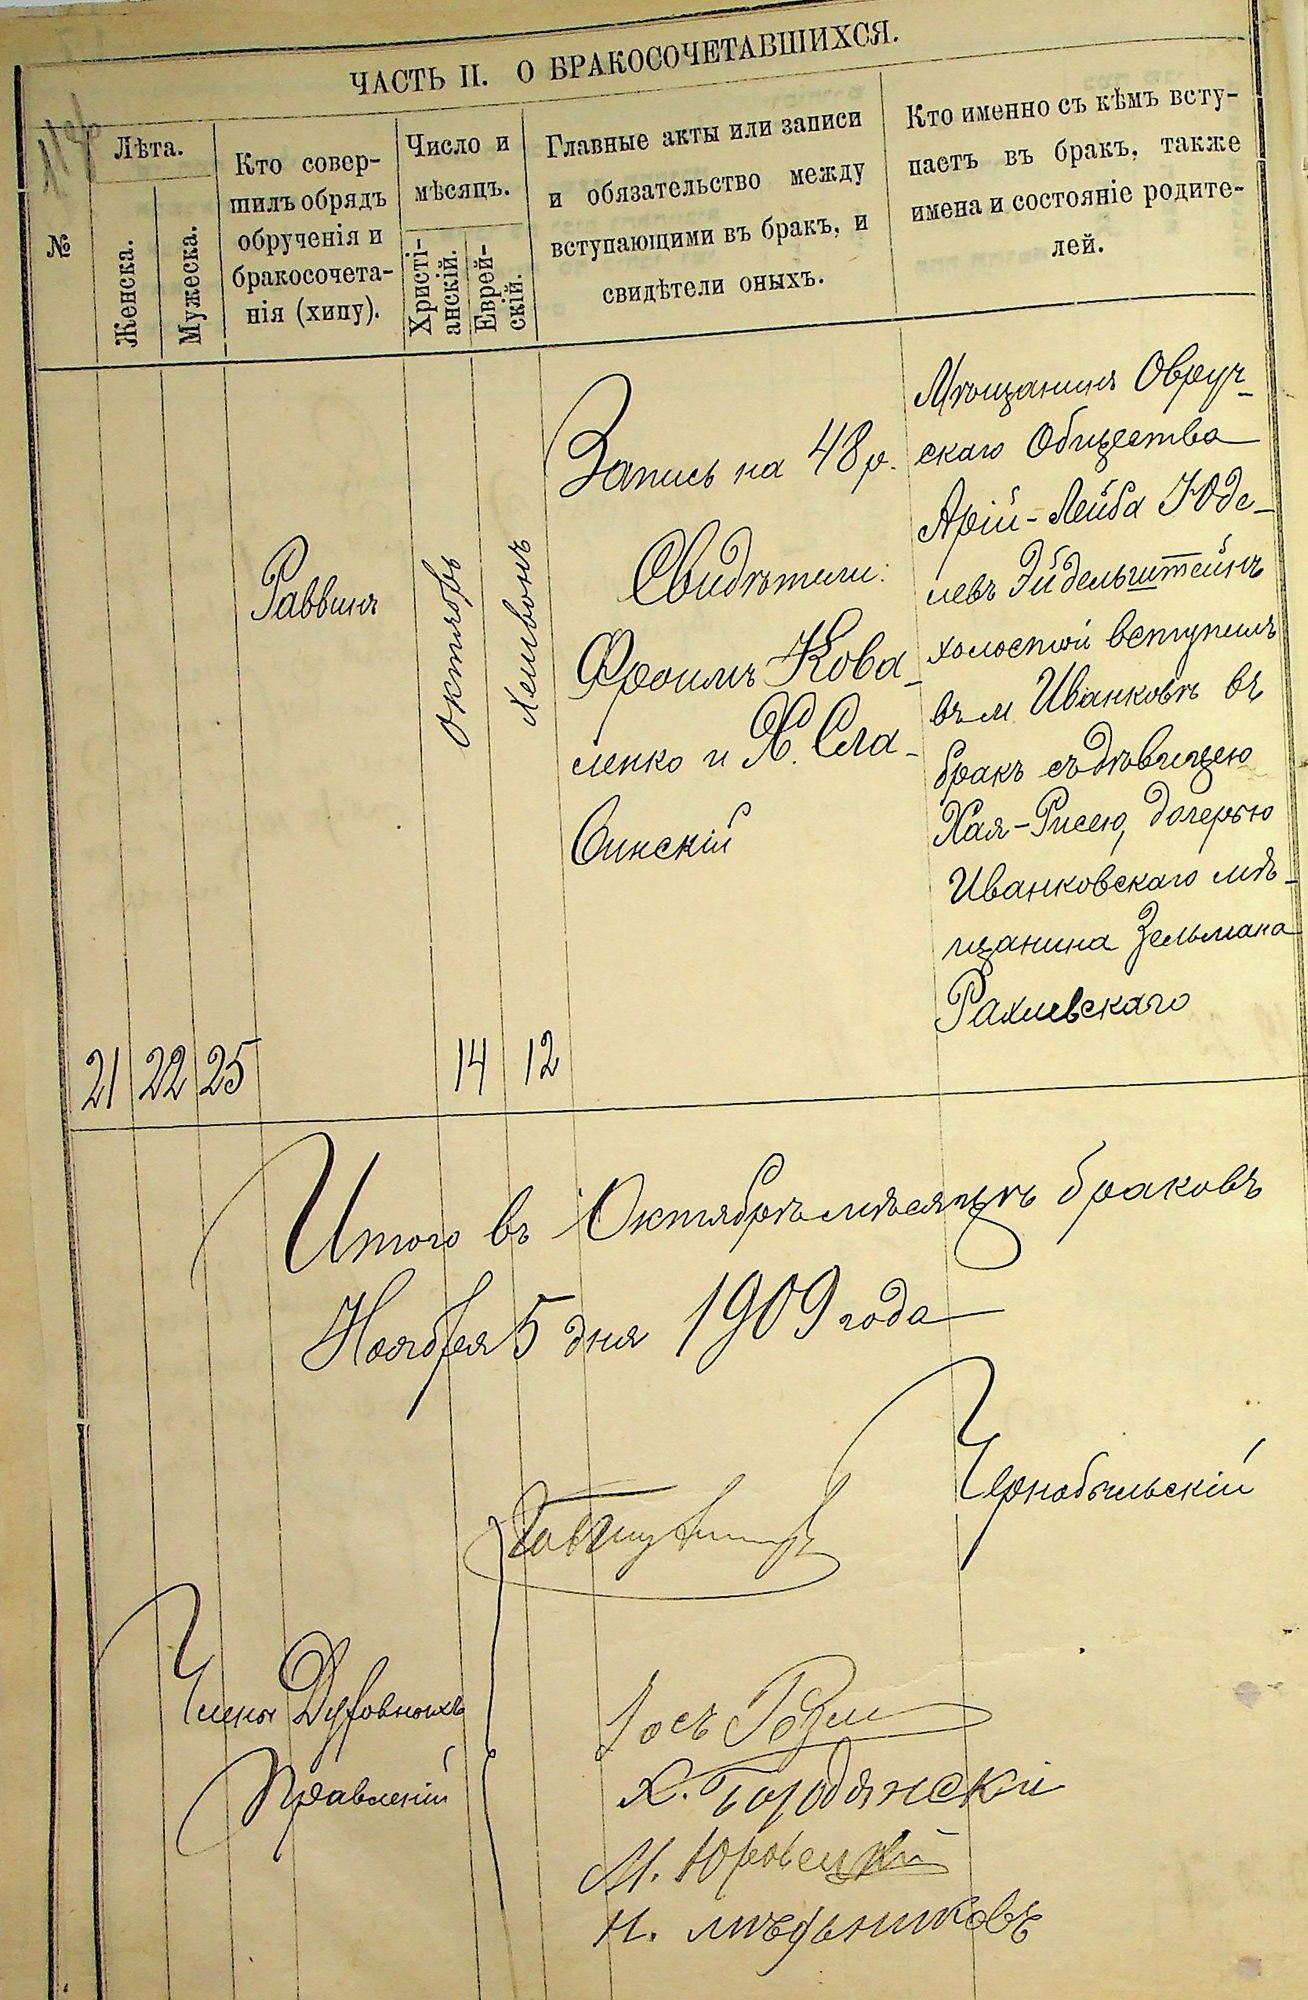 ЧАСТЬ II. О БРАКОСОЧЕТАВШИХСЯ.
№
Лѣта.
Женска.
Мужеска.
Кто совер-
шилъ обрядъ
обрученія и
бракосочета-
нія (хипу).
Число и
мѣсяцъ.
Христі-
анскій.
Еврей-
скій.
Главные акты или записи
и обязательство между
вступающими въ бракъ, и
свидѣтели оныхъ.
Кто именно съ кѣмъ всту-
паетъ въ бракъ, также
имена и состояніе родите-
лей.
21
22
25
Раввинъ
Октябрь
14
Хешвонъ
12
Запись на 48 р.
Свидѣтели:
Фроимъ Кова-
ленко и Х. Сла-
винскій
Мѣщанинъ Овруч-
скаго Общества
Арій-Лейба Юде-
левъ Эйдельштейнъ
холостой вступилъ
въ м. Иванковѣ въ
бракъ съ дѣвицею
Хая-Рисею, дочерью
Иванковскаго мѣ-
щанина Зельмана
Рахлевскаго
Итого въ Октябрѣ мѣсяцѣ браковъ
Ноября 5 дня 1909 года
Чернобыльскій
Члены Духовныхъ
Правленій
Іосъ
Х. Бородянскі
М. Юровецкій
Н. Мѣдниковъ